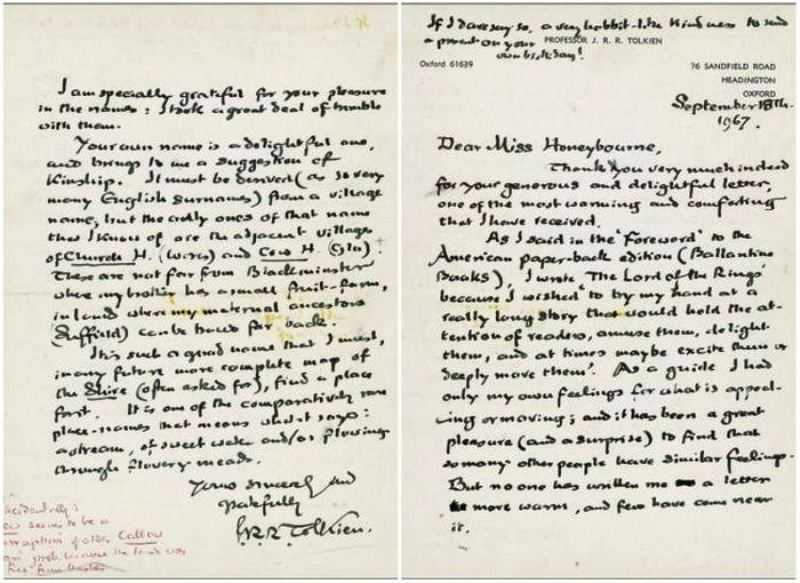 If I dare say so, a very hobbit-like kindness to send
a present on your
own birthday!
PROFESSOR J. R. R. TOLKIEN
Oxford 61639
76 SANDFIELD ROAD
HEADINGTON
OXFORD
September 18th.
1967.
Dear Miss Honeybourne,
Thank you very much indeed
for your generous and delightful letter,
one of the most warming and comforting
that I have received.
As I said in the 'Foreword' to the
American paper-back edition (Ballantine
Books), I wrote 'The Lord of the Rings'
because I wished 'to try my hand at a
really long story that would hold the at-
tention of readers, amuse them, delight
them, and at times maybe excite them or
deeply move them'. As a guide I had
only my own feelings for what is appeal-
ing or moving; and it has been a great
pleasure (and a surprise) to find that
so many other people have similar feelings.
But no one has written me a letter
more warm, and few have come near
it.
I am specially grateful for your pleasure
in the names: I took a great deal of trouble
with them.
Your own name is a delightful one,
and brings to me a suggestion of
Kinship. It must be derived (as so very
many English surnames) from a village
name, but the only ones of that name
that I know of are the adjacent villages
of Church H. (Worcs) and Cow H. (Glo).
These are not far from Blackminster
where my brother has a small fruit-farm,
in land where my maternal ancestors
(Suffield) can be traced far back.
It is such a good name that I must,
in any future more complete map of
the Shire (often asked for), find a place
for it. It is one of the comparatively rare
place-names that means what it says:
a stream, of sweet water and/or flowing
through flowery meads.
Yours sincerely and
gratefully
J.R.R. Tolkien.
seems to be a
of older Callow
because the land was